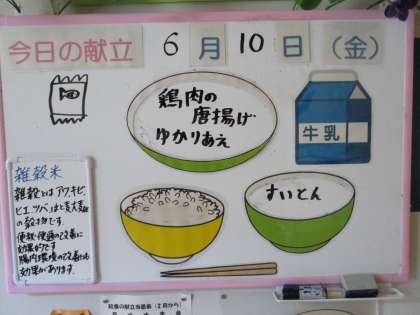 今日の献立 6月10日(金)
鶏肉の
唐揚げ
ゆかりあえ
牛乳
すいとん
雑穀米
雑穀とはアワ、キビ、
ヒエ
の穀物です。
便秘・便通の改善に
効果的です
腸内環境の改善にも
効果があります。